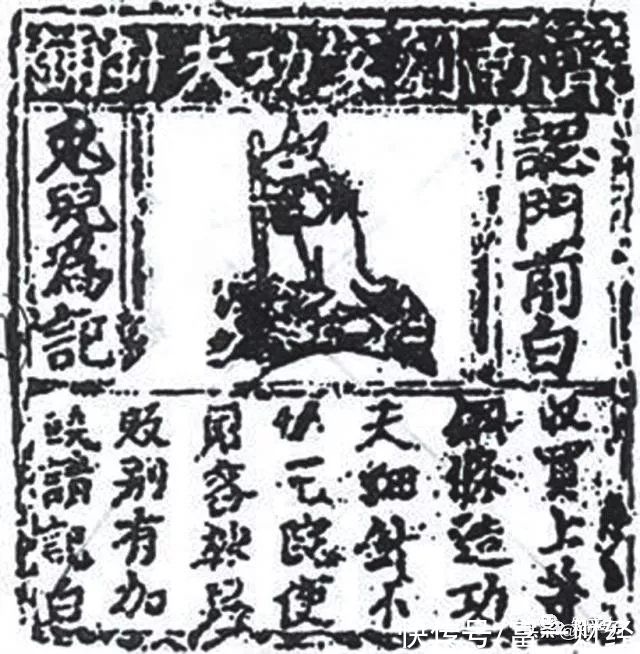 濟南劉家功夫針鋪
認門前白
兔兒為記
收買上等
鋼條造功
夫細針不
院使
用客
販别有加
饒請記白
快传号/